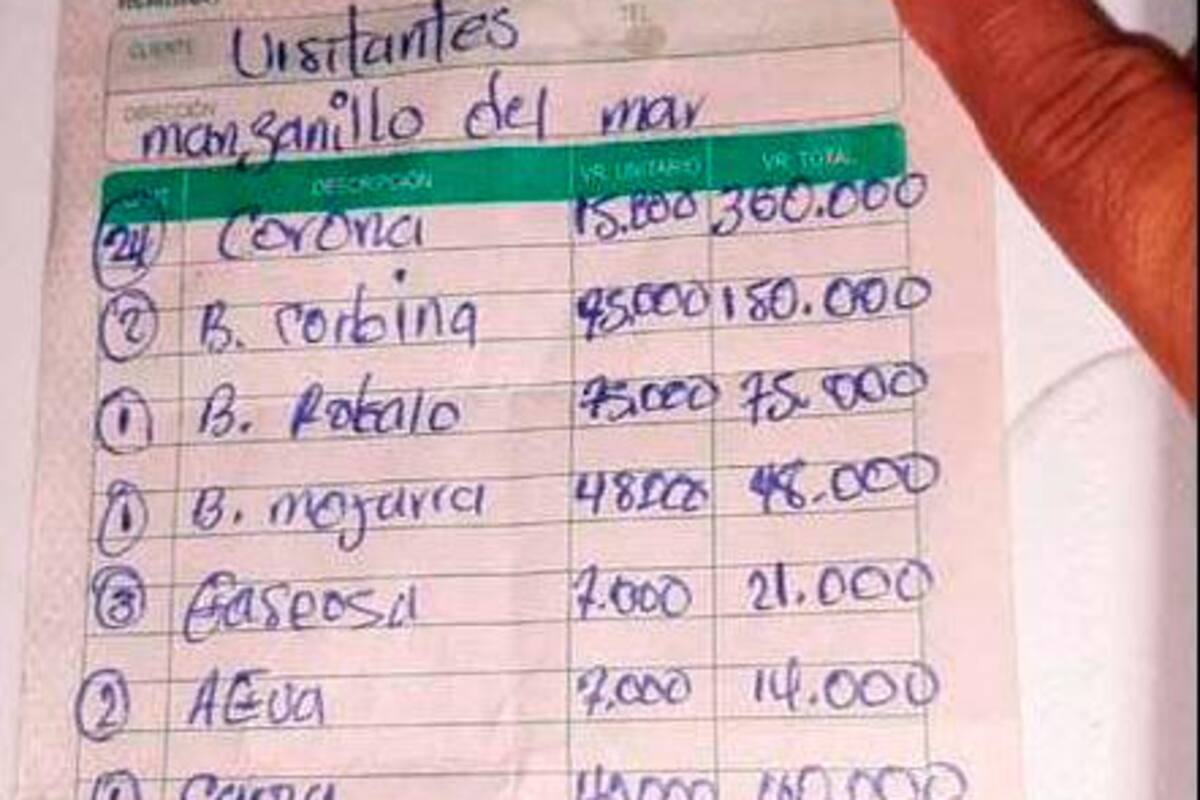 CLIENTE Visitantes TEL
DIRECCIÓN
manzanillo del mar
CANT. DESCRIPCIÓN VR. UNITARIO VR. TOTAL
24 Corona 15.000 360.000
2 B. Corbina 150.000
1 B. Robalo 75.000 75.000
1 B. mojarra 48.000 48.000
3 Gaseosa 7.000 21.000
2 AGua 7.000 14.000
1